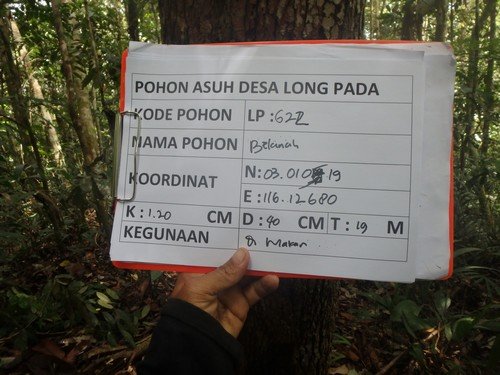 POHON ASUH DESA LONG PADA
KODE POHON LP : 622
NAMA POHON Belanah
KOORDINAT
N : 03.010 19
E : 116.12680
K : 1.20 CM D : 90 CM T : 19 M
KEGUNAAN di makan